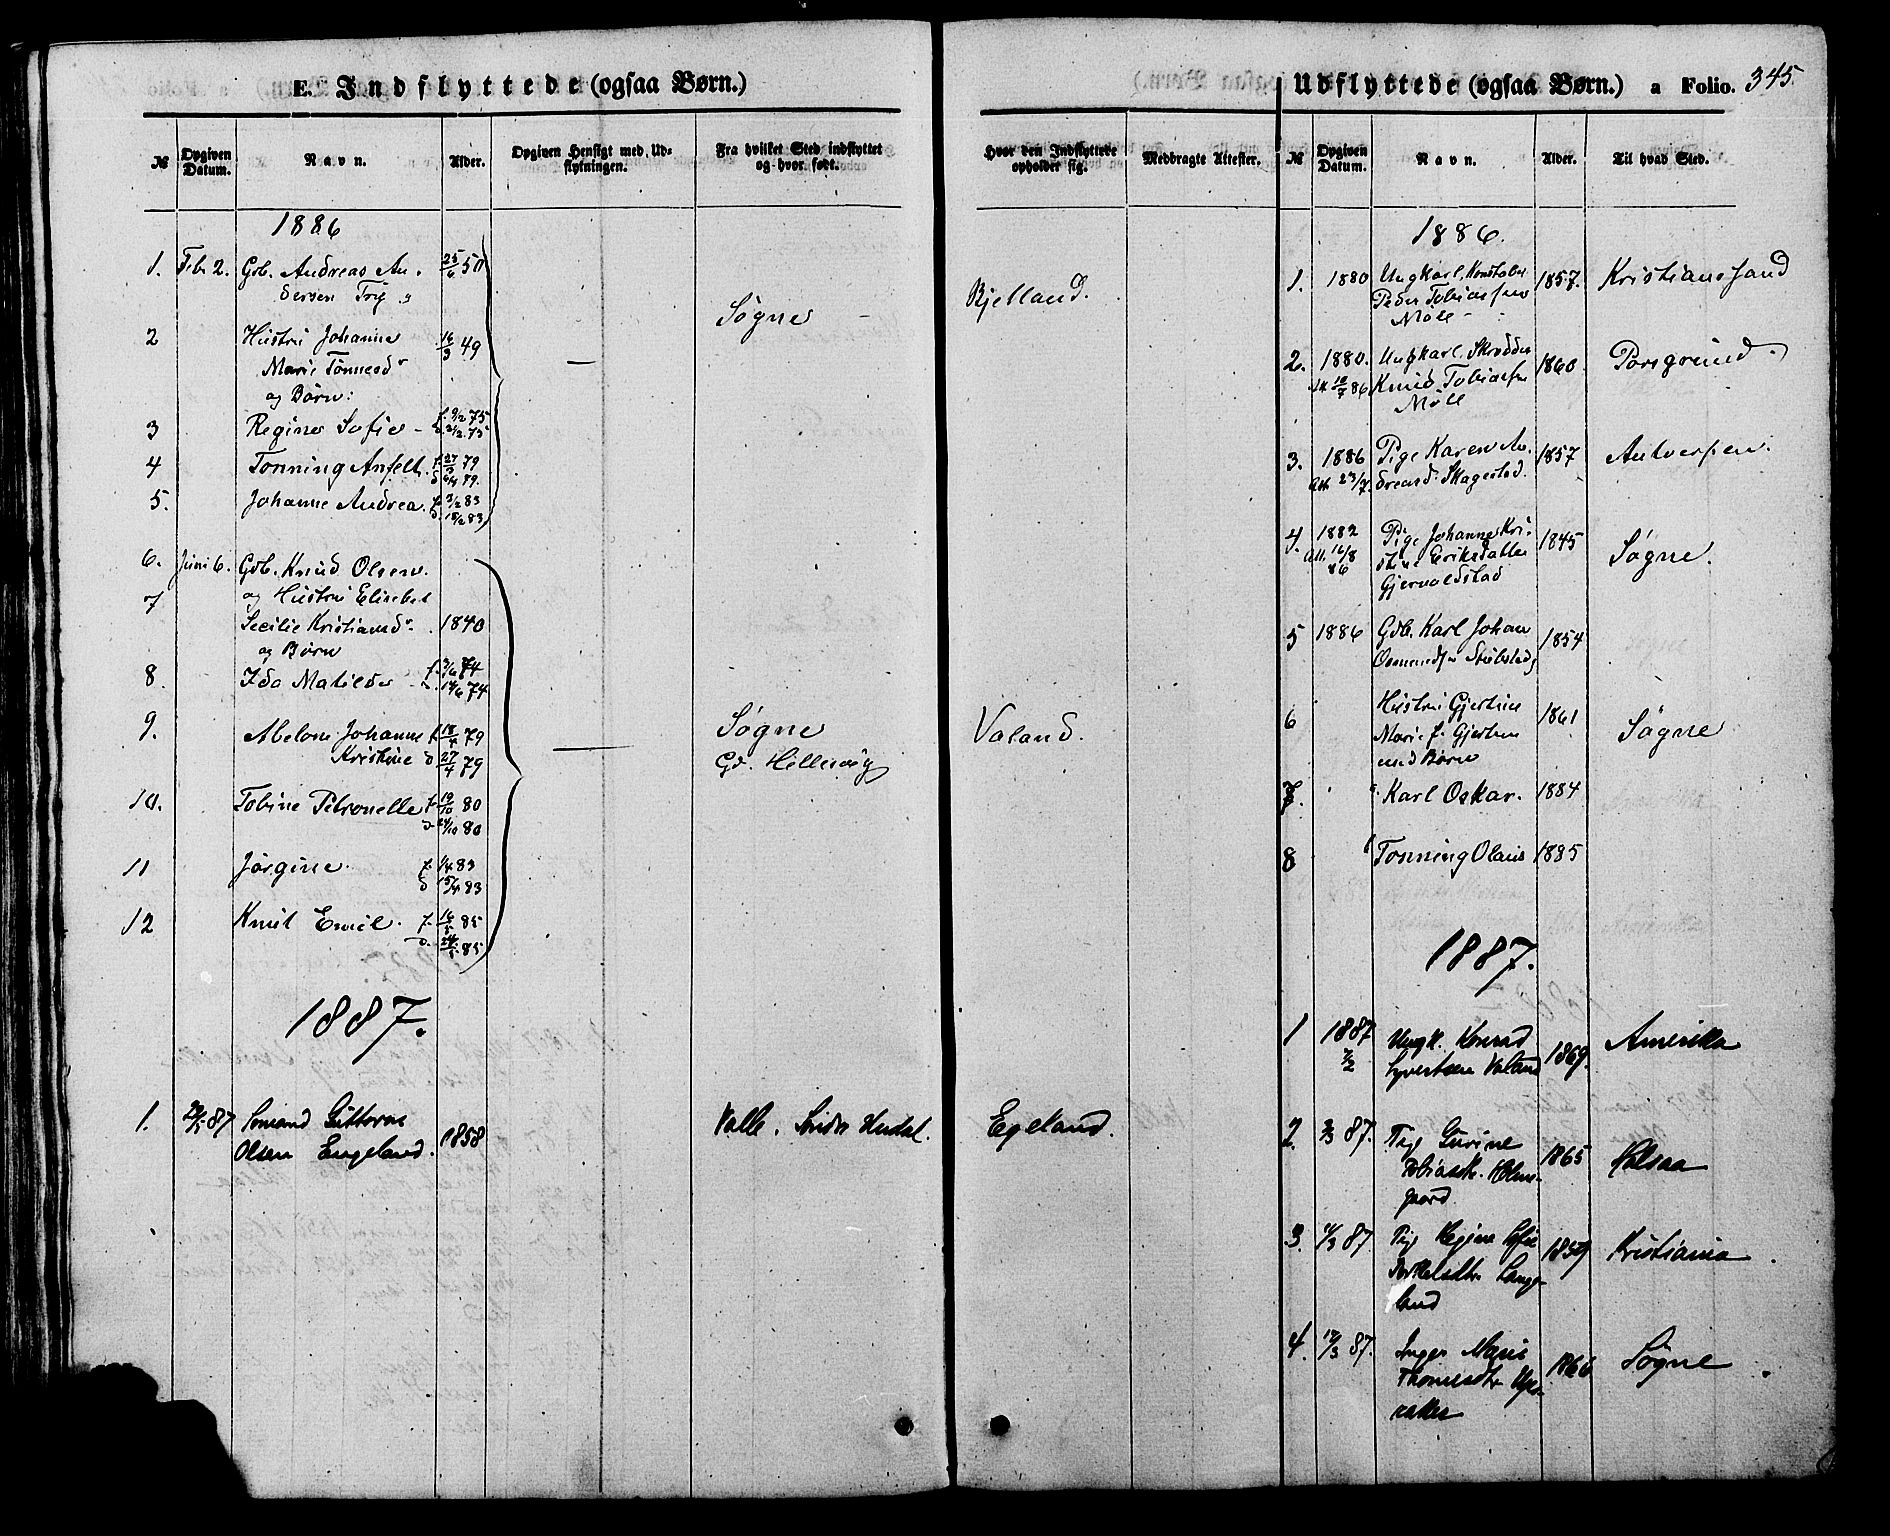 E. Indflyttede (ogsaa Børn.)
№
Opgiven Datum.
Navn.
Alder.
Opgiven Hensigt med Udflytningen.
Fra hvilket Sted indflyttet og hvor født.
Hvor den Indflyttede opholder sig.
Medbragte Attester.
1886
1. Feb. 2. Gdb. Andreas An- 25/6 50
dersen Søgne Bjelland.
2 Hustru Johanne 16/3 49
Marie Tønnesdr
og Børn:
3 Regine Sofie - f. 9/2 75
4 Tønning Anfelt. f. 27/3 79
d. 6/4 79.
5. Johanne Andrea. f. 3/2 83
d. 18/2 83
6. Juni 6. Gdb. Knud Olsen
7 og Hustru Elisabet
Secilie Kristiansdr. 1840
og Børn
8. Ida Matilde f. 3/6 74
14/6 74
9. Abelone Johanne f. 18/4 79 Søgne Valand.
Kristine d. 27/4 79 Gd. Hellevig
10. Tobine Petronelle f. 19/10 80
d. 24/10 80
11 Jørgine. f. 1/4 83
d. 15/4 83
12 Knut Emil. f. 16/5 85
d. 24/5 85
1887.
1. 87 Guttorm 1858 Valle. Egeland.
Olsen Engeland.
Udflyttede (ogsaa Børn.) a Folio. 345.
№
Opgiven Datum.
Navn.
Alder.
Til hvad Sted.
1886.
1. 1880 Ungkarl Konstabel 1857. Kristianssand
Peder Tobiassen
Møll
2. 1880. Ungkarl Skrædder 1860 Porsgrund.
Att 10/7 86 Knud Tobiassen
Møll
3. 1886 Pige Karen An- 1857 Antverpen.
Att. 23/7. dreasd. Skagestad.
4. 1882 Pige Johanne Kri- 1845 Søgne.
Att. 16/8 stine Eriksdatter
86 Gjervoldstad
5 1886 Gdb. Karl Johan 1854
Osmundsen Stubstad
6 Hustru Gjertine 1861 Søgne
Marie f. Gjertsen
med Børn
7. Karl Oskar. 1884
8 Tønning Olaus 1885
1887.
1 1887 Ungk. Konrad 1869. Amerika
7/2 Syvertsen Valand
2. 87. Pige Gurine 1865 Halsaa
Tobiasdtr. Holme-
gaard
3. 11/3 87. Pige Regine Sofie 1859 Kristiania
Lange-
land
4. 87. Inger Marie 1866 Søgne